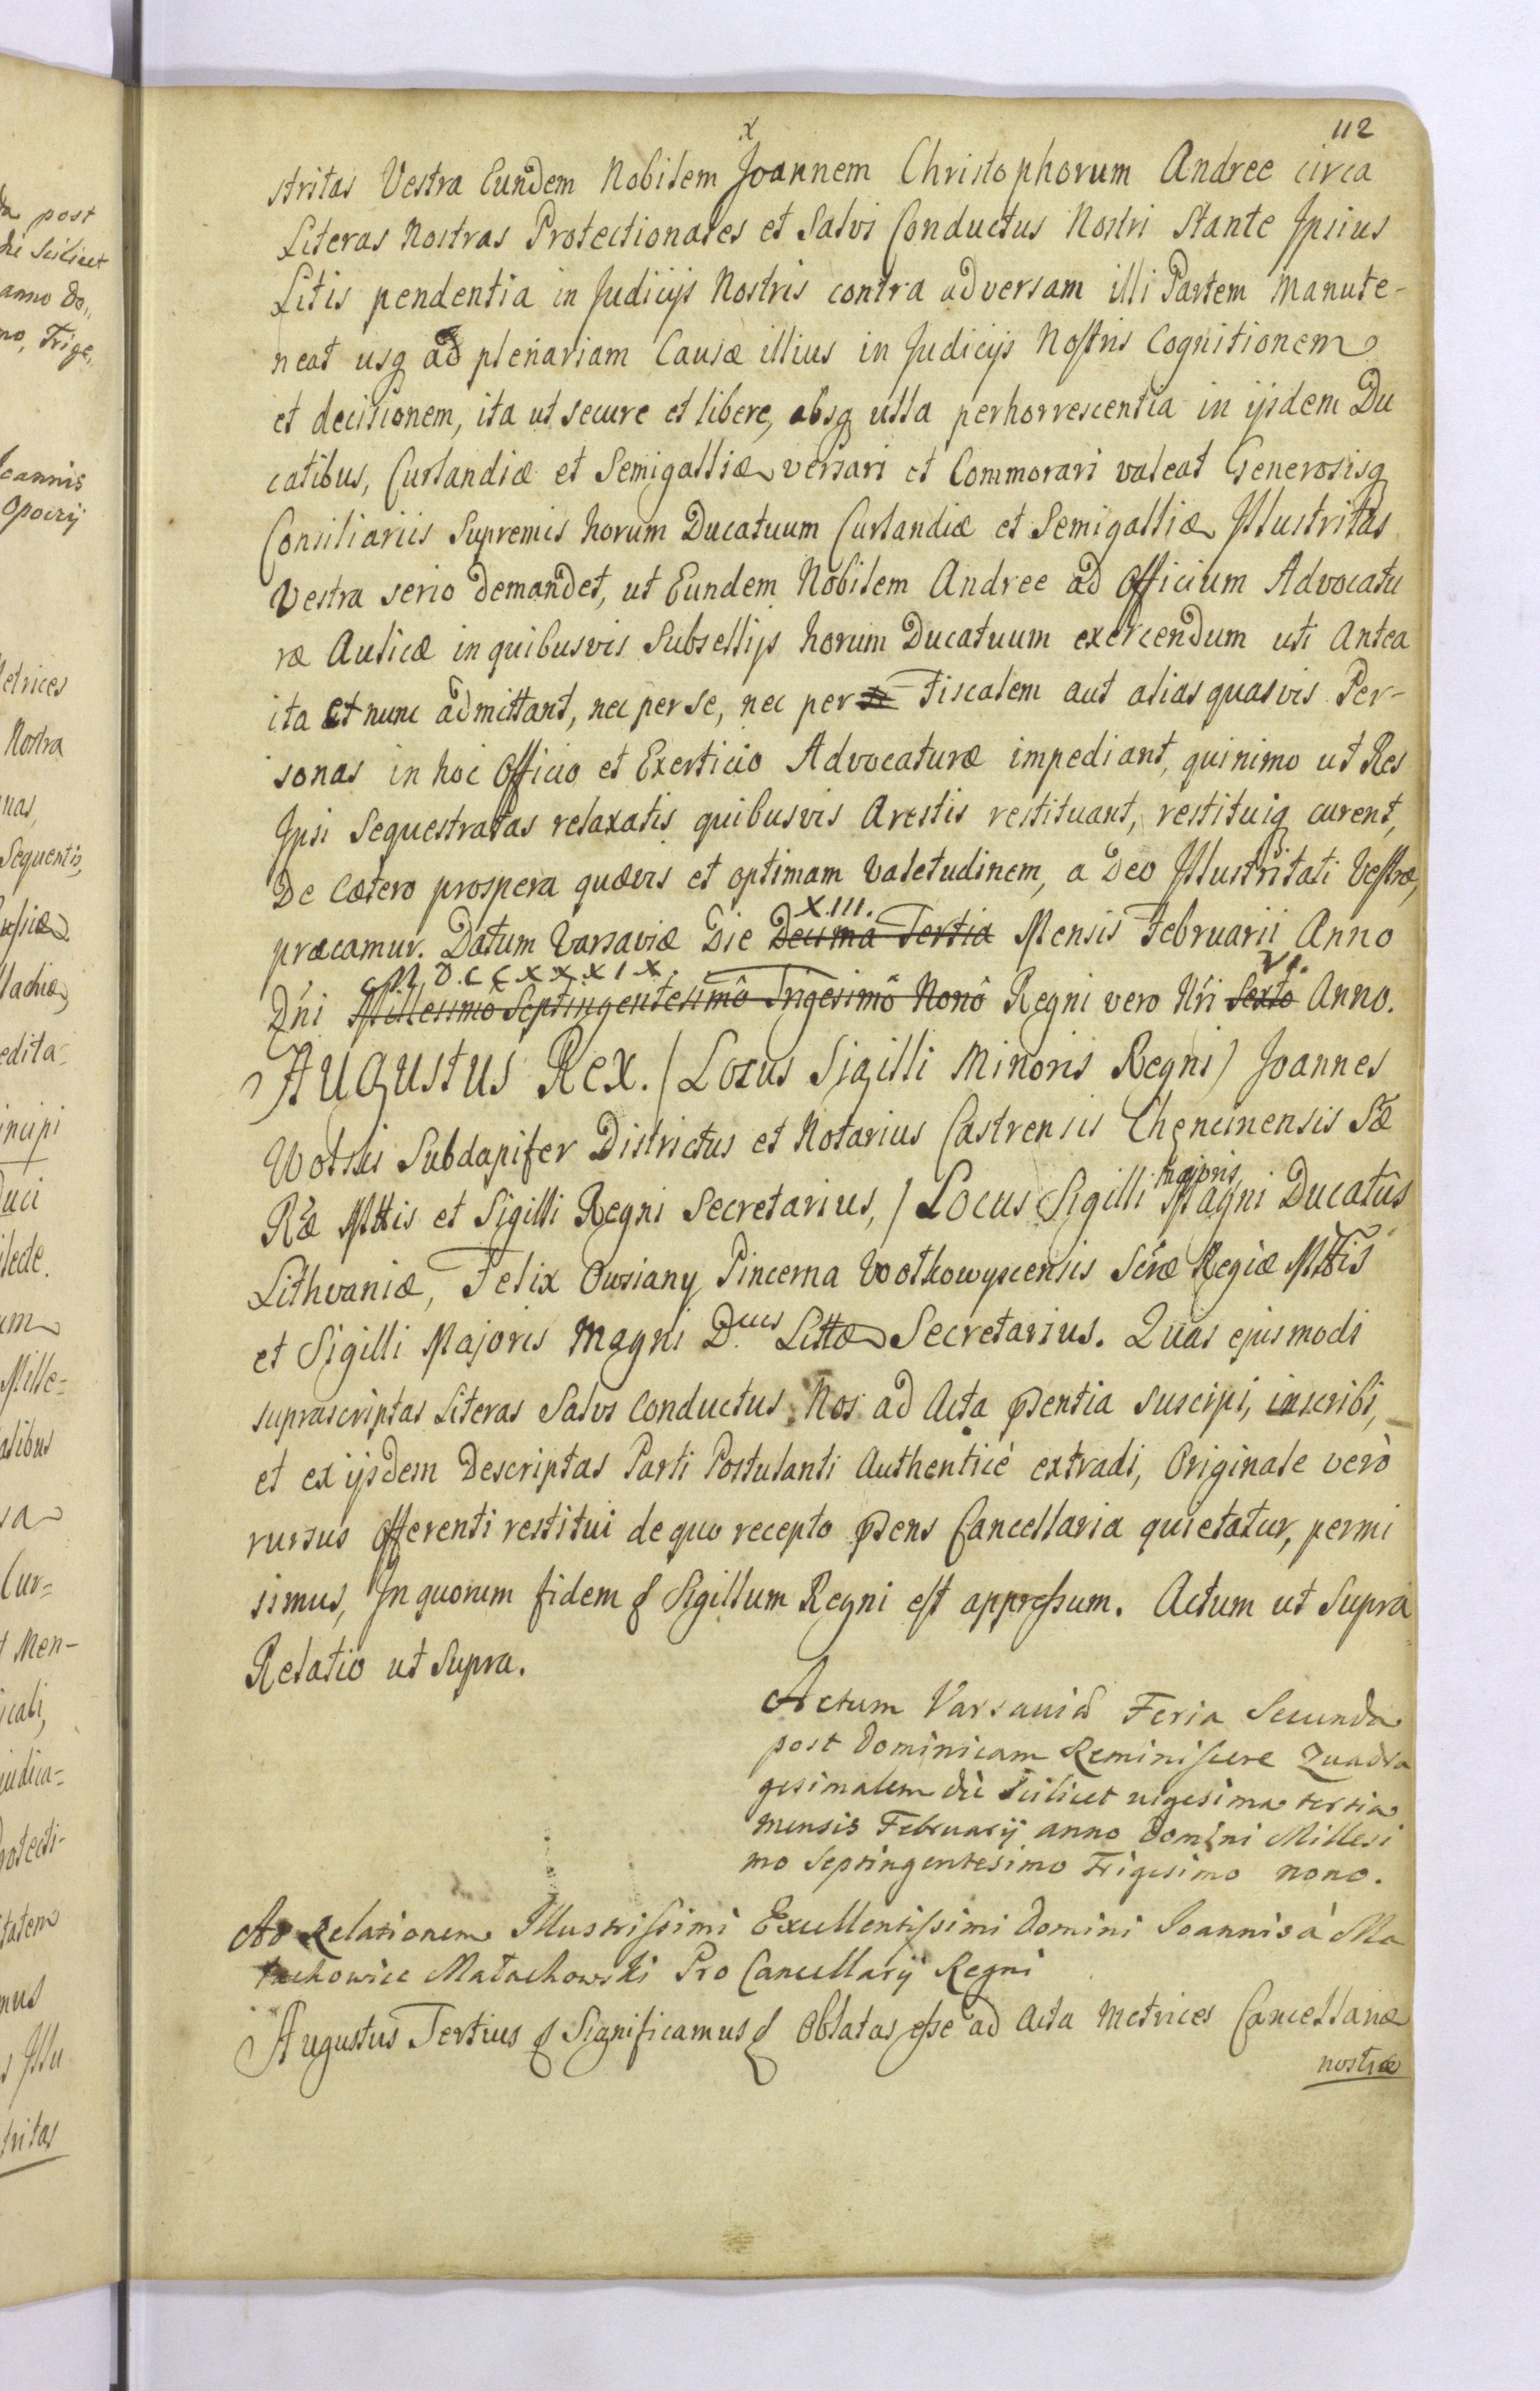 112
stritas Vestra Eundem Nobilem Joannem Christophorum Andree circa
Literas Nostras Protectionales et Salvi Conductus Nostri Stante Ipsius
Litis pendentia in Judicijs Nostris contra adversam illi Partem manute-
neat usq ad plenariam Causæ illius in Judicijs Nostris Cognitionem
et decisionem, ita ut secure et libere, absq ulla perhorrescentia in ijsdem Du
catibus, Curlandiæ et Semigalliæ versari et Commorari valeat Generosisq
Consiliariis Supremis horum Ducatuum Curlandiæ et Semigalliæ Illustritas
Vestra serio demandet, ut Eundem Nobilem Andree ad Officium Advocatu
ræ Aulicæ in quibusvis Subsellijs horum Ducatuum exercendum uti antea
ita et nunc admittant, nec per se, nec per Fiscalem aut alias quasvis Per-
sonas in hoc Officio et Exerticio Advocaturæ impediant, quinimo ut Res
Ipsi Sequestratas relaxatis quibusvis Arestis restituant, restituiq curent,
De Cætero prospera quævis et optimam Valetudinem, a Deo Illustritati Vestræ,
X.III.
præcamur. Datum Varsaviæ Die Decima Tertia Mensis Februarii Anno
M D.CCXXXIX. VI.
Dni Millesimo Septingentesimô Trigesimô Nonô Regni vero Nri Sexto Anno.
Augustus Rex. / Locus Sigilli Minoris Regni / Joannes
Wolski Subdapifer Districtus et Notarius Castrensis Chęncinensis Sæ
majoris
Ræ Mttis et Sigilli Regni Secretarius, / Locus Sigilli Magni Ducatûs
Lithvaniæ, Felix Owsiany Pincerna Wołkowyscensis Sræ Regiæ Mttis
et Sigilli Majoris Magni D.cus Littæ Secretarius. Quas ejusmodi
suprascriptas Literas Salvi Conductus Nos ad Acta psentia suscipi, inscribi,
et ex ijsdem Descriptas Parti Postulanti Authenticè extradi, Originale verò
rursus offerenti restitui de quo recepto psens Cancellaria quietatur, permi
simus, In quorum fidem & Sigillum Regni est appressum. Actum ut Supra
Relatio ut Supra.
Actum Varsaviæ Feria Secunda
post Dominicam Reminiscere Quadra
gesimalem die scilicet vigesima tertia
mensis Februarij anno Domini Millesi
mo Septingentesimo Trigesimo nono.
Ad Relationem Illustrissimi Excellentissimi Domini Joannis à Ma
łachowice Małachowski Pro Cancellarij Regni
Augustus Tertius & Significamus & Oblatas esse ad Acta Metrices Cancellariæ
nostræ